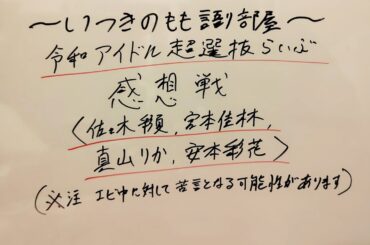 ～いつきのもも語り部屋～
令和アイドル超選抜らいぶ
感想戦
〈佐々木彩夏, 宮本佳林,
真山りか, 安本彩花〉
(※注 エビ中に対して苦言となる可能性があります)